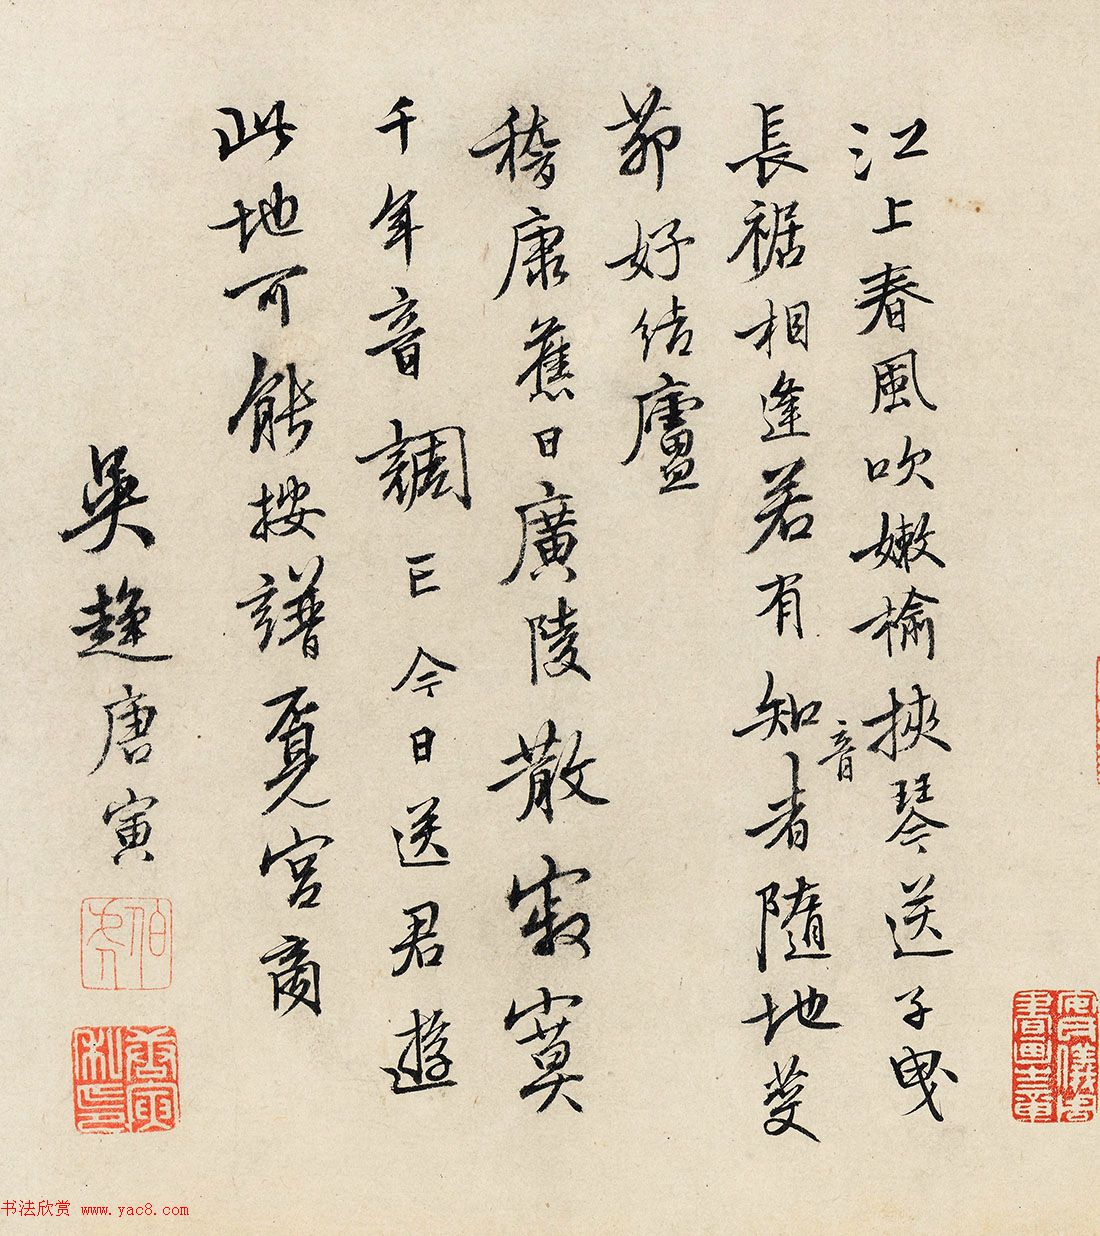 江上春風吹嫩榆挾琴送子曳
長裾相逢若有知音者隨地芟
茆好結廬
嵇康舊日廣陵散寂寞
千年音調亡今日送君遊
此地可能按譜覓宮商
吳趨唐寅
伯虎
唐寅私印
書法欣赏 www.yac8.com